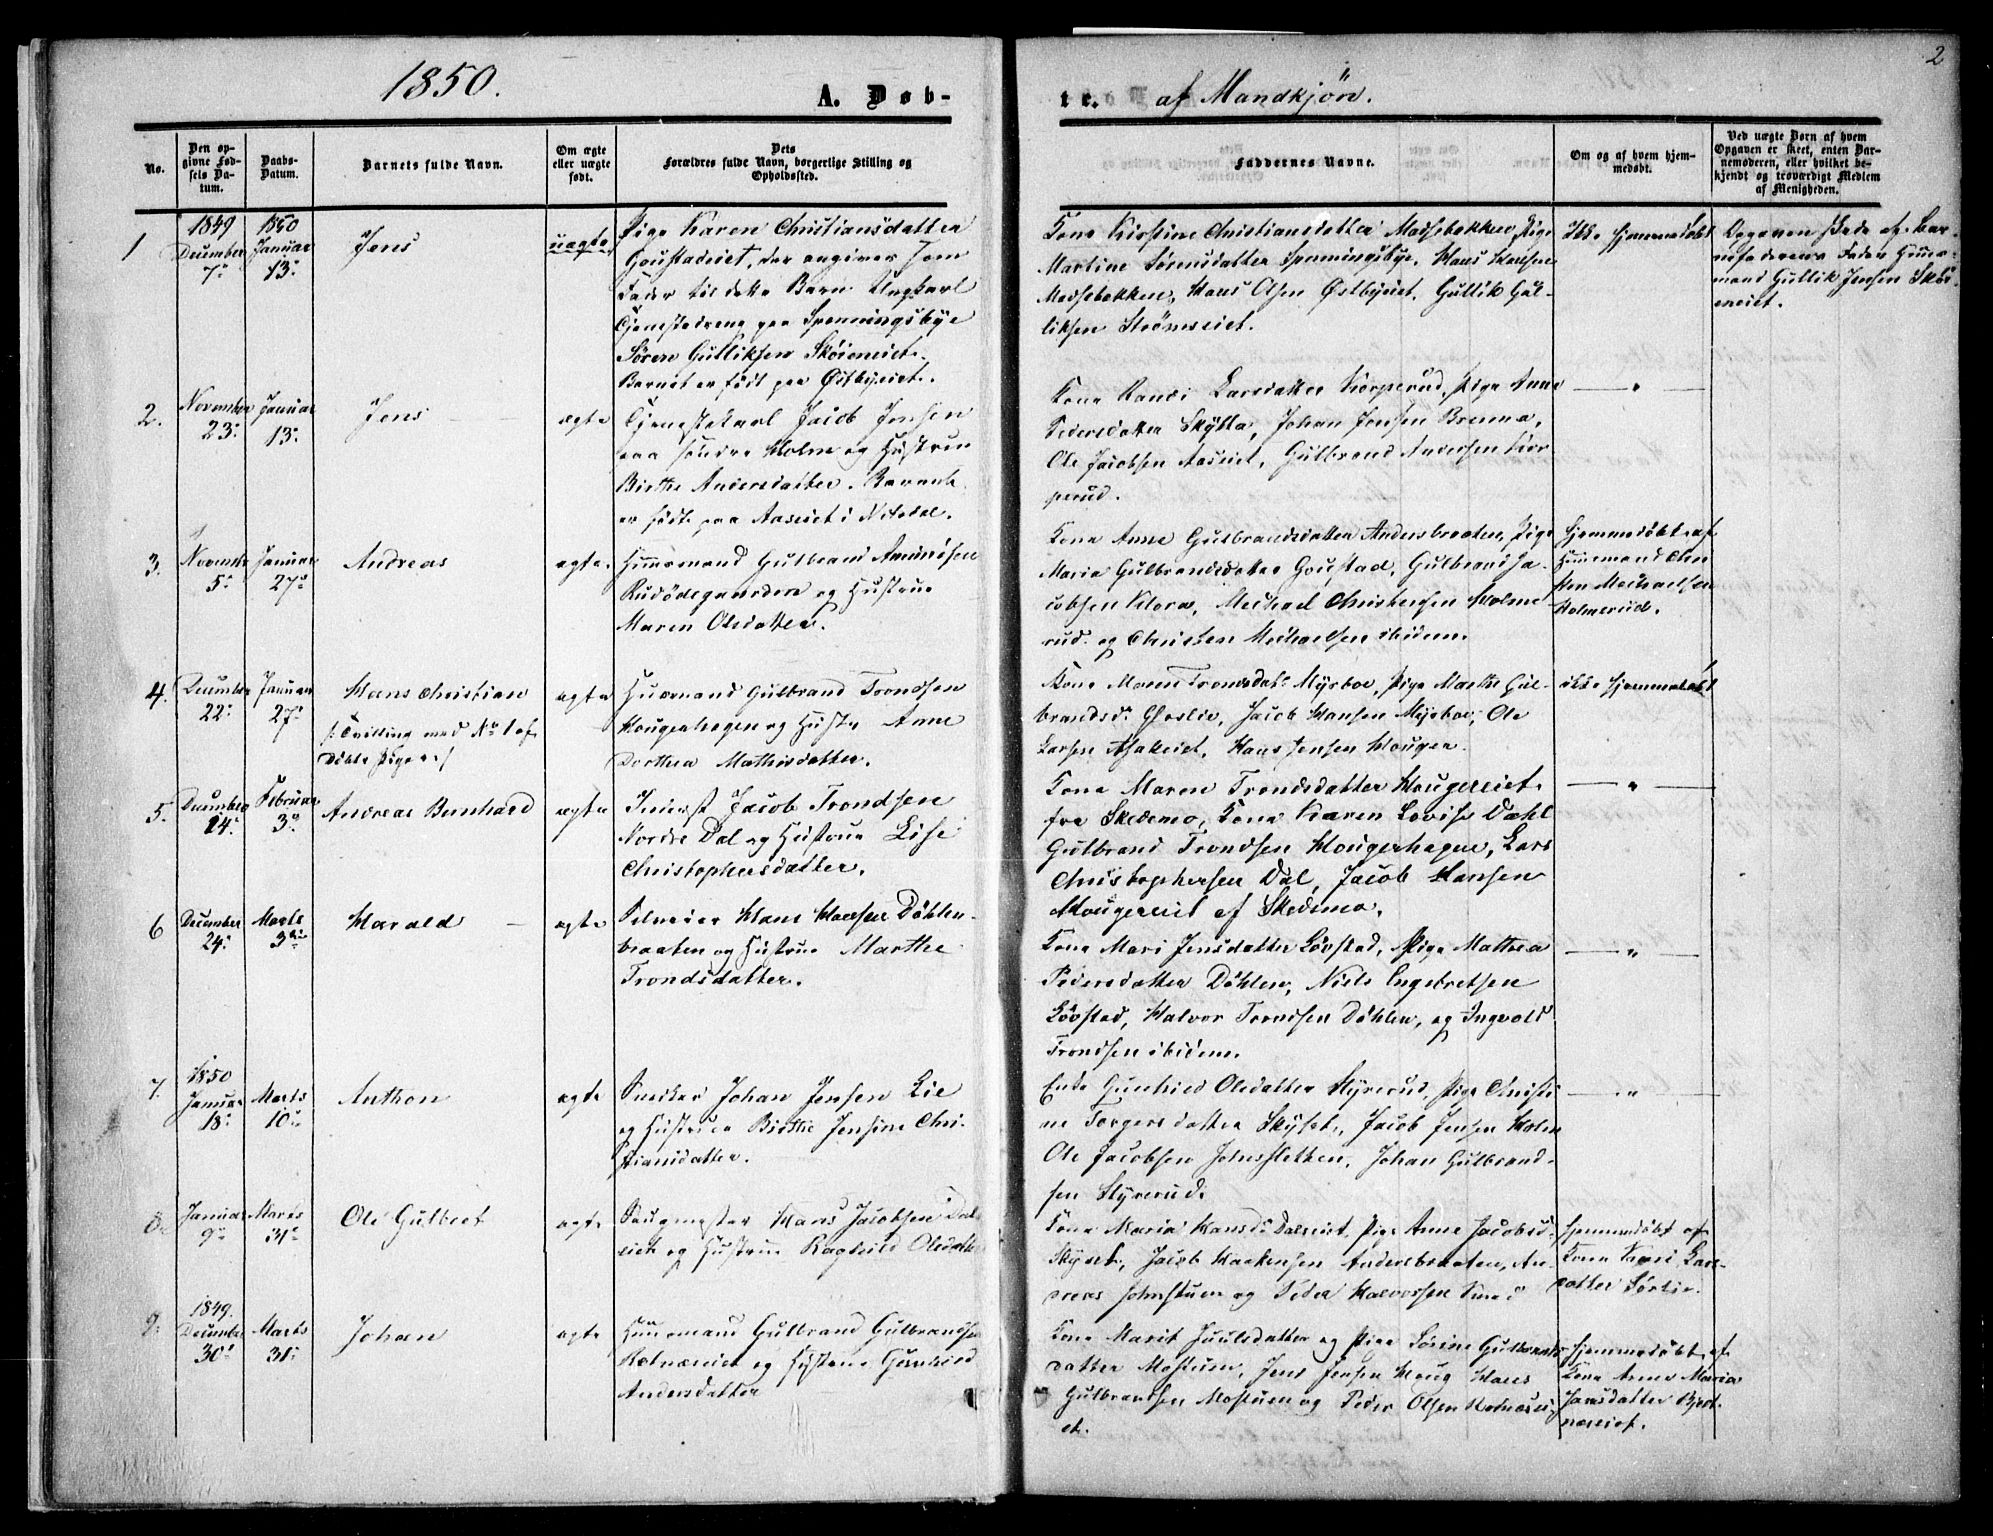 2
1850.
A. Døb-
te. af Mandkjön.
No.
Den op-
givne Fød-
sels Da-
tum.
Daabs-
Datum.
Barnets fulde Navn.
Om ægte
eller uægte
født.
Dets
Forældres fulde Navn, borgerlige Stilling og
Opholdssted.
Faddernes Navne.
Om og af hvem hjem-
medøbt.
Ved uægte Børn af hvem
Opgaven er skeet, enten Bar-
nemoderen, eller hvilket be-
kjendt og troværdigt Medlem
af Menigheden.
1
1849
December
7
1850
Januar
13
Jens
uægte
Pige Karen Christiansdatter
Goustadeiet, der angiver som
Fader til dette Barn Ungkarl
Tjenestedreng paa Spenningsbye
Sören Gulliksen Sköieneiet.
Barnet er födt paa Østbyeiet.
Kone Kirstine Christiansdatter Madsebakken, Pige
Martine Sörensdatter Spenningsbye, Hans Hansen
Madsebakken, Hans Olsen Østbyeiet, Gullik Gul-
liksen Strömseiet.
Ikke hjemmedöbt
Opgaven skede af Bar-
nefaderens Fader Huus-
mand Gullik Jensen Sköi-
eneiet.
2.
November
23
Januar
13
Jens
ægte
Tjenestekarl Jacob Jensen
paa söndre Holm og Hustrue
Birthe Andersdatter. Barnet
er födt paa Aaseiet i Nitedal.
Kone Randi Larsdatter Korperud, Pige Anne
Pedersdatter Skytta, Johan Jensen Brenna,
Ole Jacobsen Aaseiet, Gulbrand Andersen Kor-
perud.
— " —
3.
November
5
Januar
27
Andreas
ægte
Huusmand Gulbrand Amundsen
Rudödegaarden og Hustrue
Maren Olsdatter.
Kone Anne Gulbrandsdatter Andersbraaten, Pige
Maria Gulbrandsdatter Goustad, Gulbrand Ja-
cobsen Mora, Michael Christensen Holme-
rud og Christen Michaelsen ibidem.
Hjemmedöbt af
Huusmand Chri-
sten Michaelsen
Holmerud.
4.
December
22
Januar
27
Hans Christian
/: Tvilling med No 1 af
Döbte Piger :/
ægte
Huusmand Gulbrand Trondsen
Hougerhagen og Hustr. Anne
Dorthea Mathisdatter.
Kone Maren Trondsdatr Myrboe, Pige Marthe Gul-
brandsd. Gloslie, Jacob Hansen Myrboe, Ole
Larsen Asakeiet, Hans Jensen Houger.
ikke hjemmedöbt
5.
December
14
Februar
3
Andreas Bernhard
ægte
Inderst Jacob Trondsen
Nordre Dal og Hustrue Lise
Christophersdatter.
Kone Maren Trondsdatter Hougereiet
fra Skedsmo, Kone Karen Lovise Dahl
Gulbrand Trondsen Hougerhagen, Lars
Christophersen Dal, Jacob Hansen
Hougereiet af Skedsmo.
— " —
6
December
24
Marts
3die
Harald
ægte
Selveier Hans Hansen Döhlen-
braaten og Hustrue Marthe
Trondsdatter.
Kone Mari Jensdatter Lövstad, Pige Mathea
Pedersdatter Döhlen, Niels Engebretsen
Lövstad, Halvor Trondsen Döhlen, og Ingvold
Trondsen ibidem.
— " —
7.
1850
Januar
18
Marts
10
Anthon
ægte
Snedker Johan Jensen Lie
og Hustrue Birthe Jensine Chri-
stiansdatter.
Enke Gunhild Olsdatter Styrerud, Pige Christi-
ne Torgersdatter Skyset, Jacob Jensen Holm
Ole Jacobsen Johnsletten, Johan Gulbrand-
sen Styrerud.
— " —
8.
Januar
9
Marts
31
Ole Gulbret
ægte
Saugmester Hans Jacobsen Dal-
eiet og Hustrue Ragnild Olsdatter
Kone Maria Hansd. Daleiet, Pige Anne Jacobsd.
Skyset, Jacob Haakensen Andersbraaten, An-
dreas Johnstuen og Peder Halvorsen
Hjemmedöbt af
Kone Kari Lars-
datter Sörlie.
9.
1849.
December
30
Marts
31
Johan
ægte
Huusmand Gulbrand Gulbrandsen
Holmeneiet og Hustrue Gunhild
Andersdatter
Kone Marit Juulsdatter og Pige Sörine Gulbrands-
datter Mostuen, Jens Jensen Houg Hans
Gulbrandsen Mostuen og Peder Olsen
et.
Hjemmedöbt af
Kone Anne Maria
Jansdatter